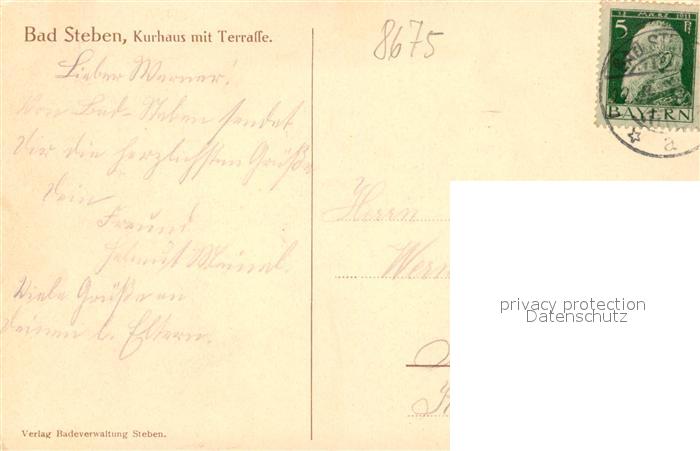 Bad Steben, Kurhaus mit Terrasse.
8675
12 MÄRZ 1911
5 Pf
BAYERN
a
Lieber Werner!
Von Bad-Steben sendet
Dir die herzlichsten Grüße
Dein
Freund
Helmut
Viele Grüße an
Deinen l. Eltern.
Herrn
Wern
privacy protection
Datenschutz
Verlag Badeverwaltung Steben.